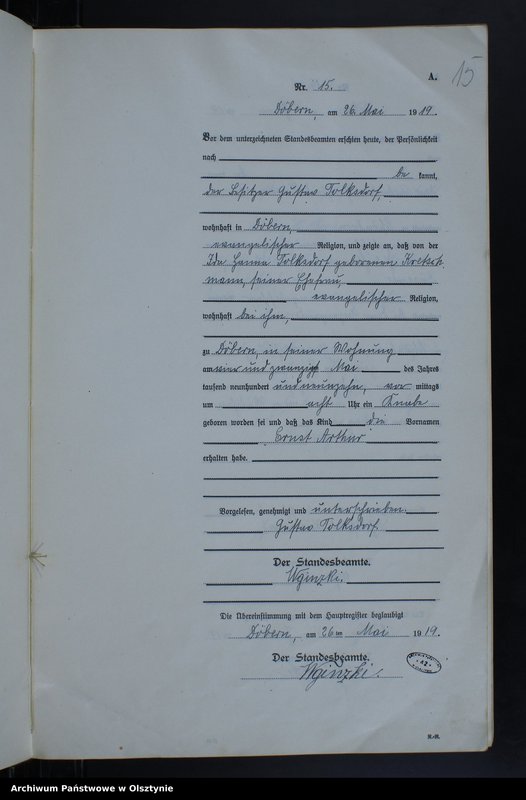 A.
15
Nr. 15.
Döbern, am 26. Mai 1919.
Vor dem unterzeichneten Standesbeamten erschien heute, der Persönlichkeit
nach
be kannt,
der Besitzer Gustav Tolksdorf,
wohnhaft in Döbern,
evangelischer Religion, und zeigte an, daß von der
Ida Hanna Tolksdorf geborenen Kretsch
mann, seiner Ehefrau,
evangelischer Religion,
wohnhaft bei ihm,
zu Döbern, in seiner Wohnung
am vier und zwanzigst Mai des Jahres
tausend neunhundert und neunzehn, vor mittags
um acht Uhr ein Knabe
geboren worden sei und daß das Kind die Vornamen
Ernst Arthur
erhalten habe.
Vorgelesen, genehmigt und unterschrieben.
Gustav Tolksdorf.
Der Standesbeamte.
Die Übereinstimmung mit dem Hauptregister beglaubigt
Döbern, am 26 ten Mai 1919.
Der Standesbeamte.
Archiwum Państwowe w Olsztynie